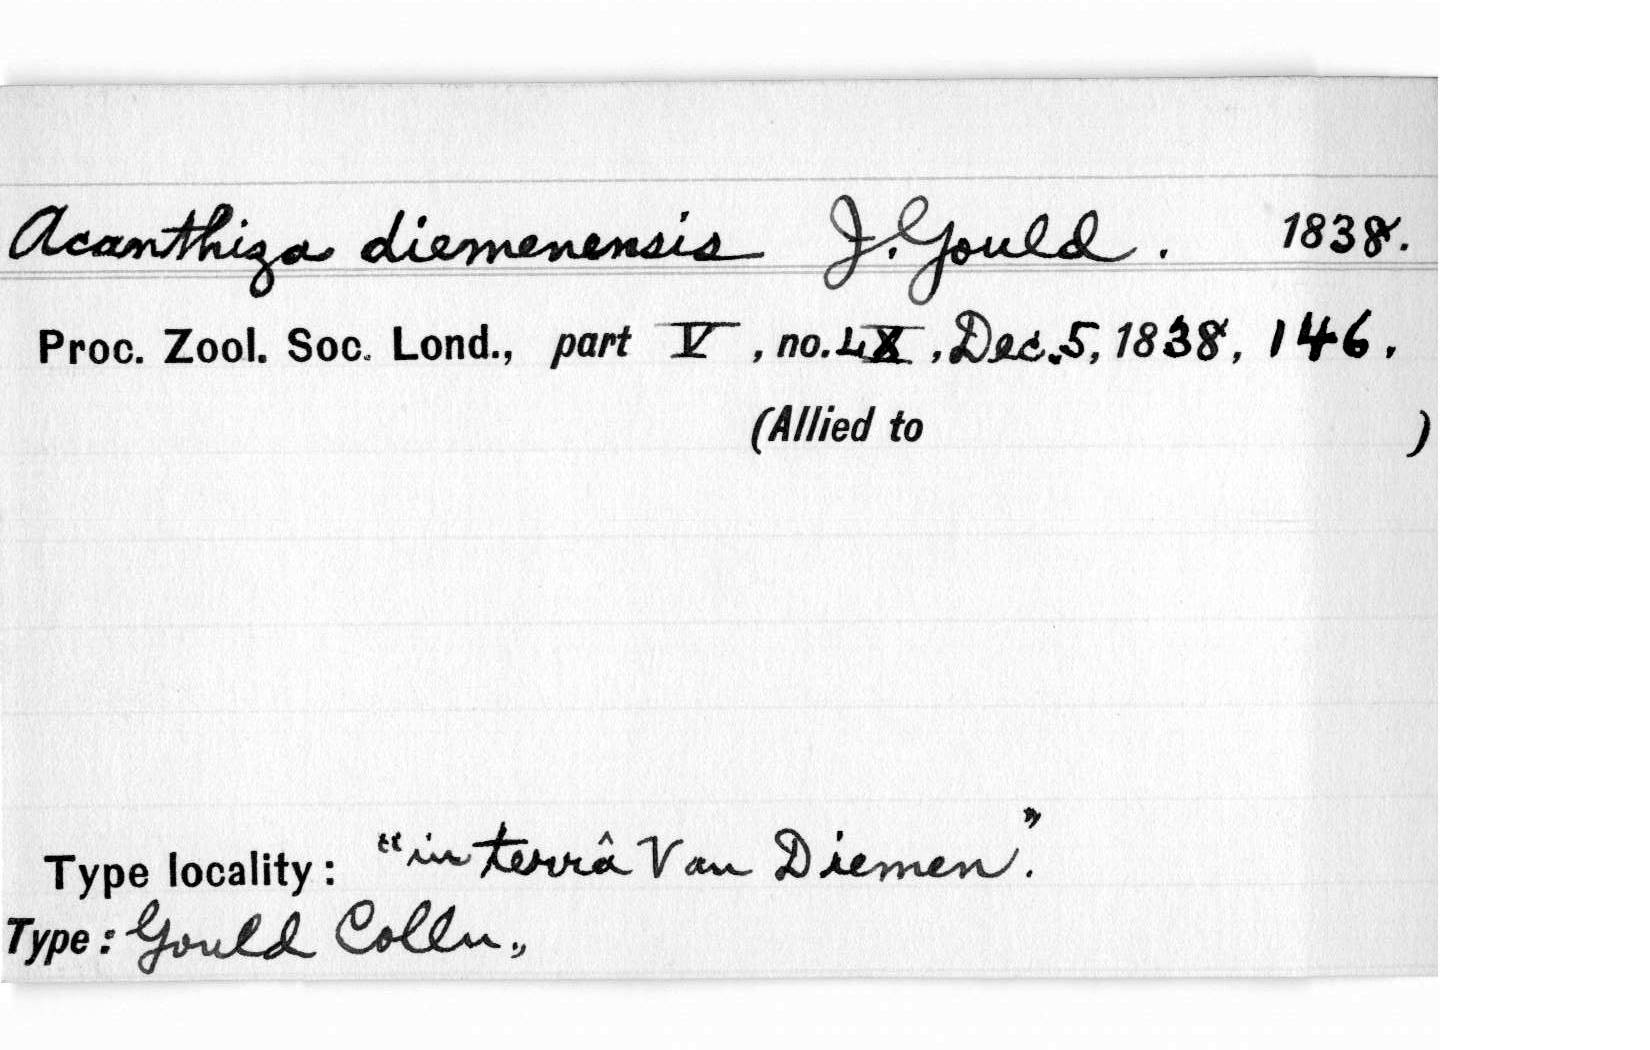 Acanthiza diemenensis J. Gould. 1838.
Proc. Zool. Soc. Lond., part V, no. LX, Dec. 5, 1838, 146.
(Allied to )
Type locality: "in terrâ Van Diemen".
Type: Gould Colln.,